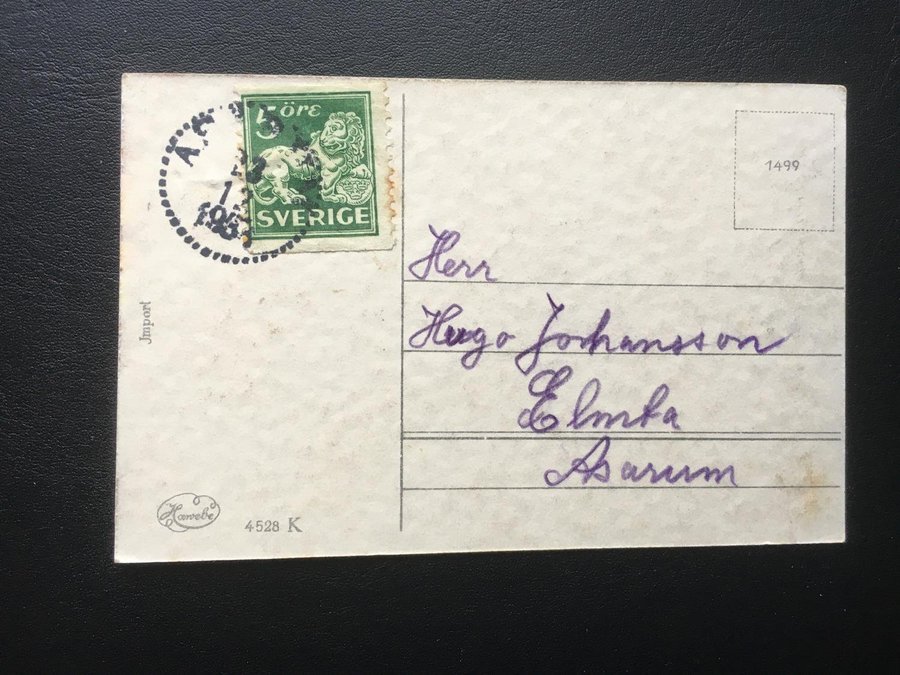 5 öre
SVERIGE
12
1499
Herr
Hugo Johansson
Elmta
Asarum
Import
Hawebe
4528 K